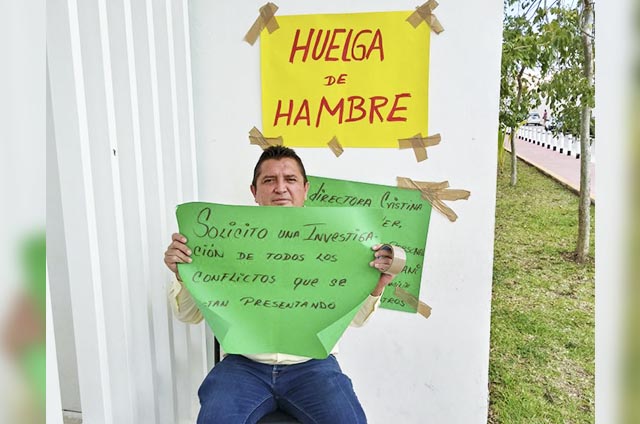 HUELGA
DE
HAMBRE
directora Cristina
SOLICITO UNA INVESTIGA-
CIÓN DE TODOS LOS
CONFLICTOS QUE SE
PRESENTANDO